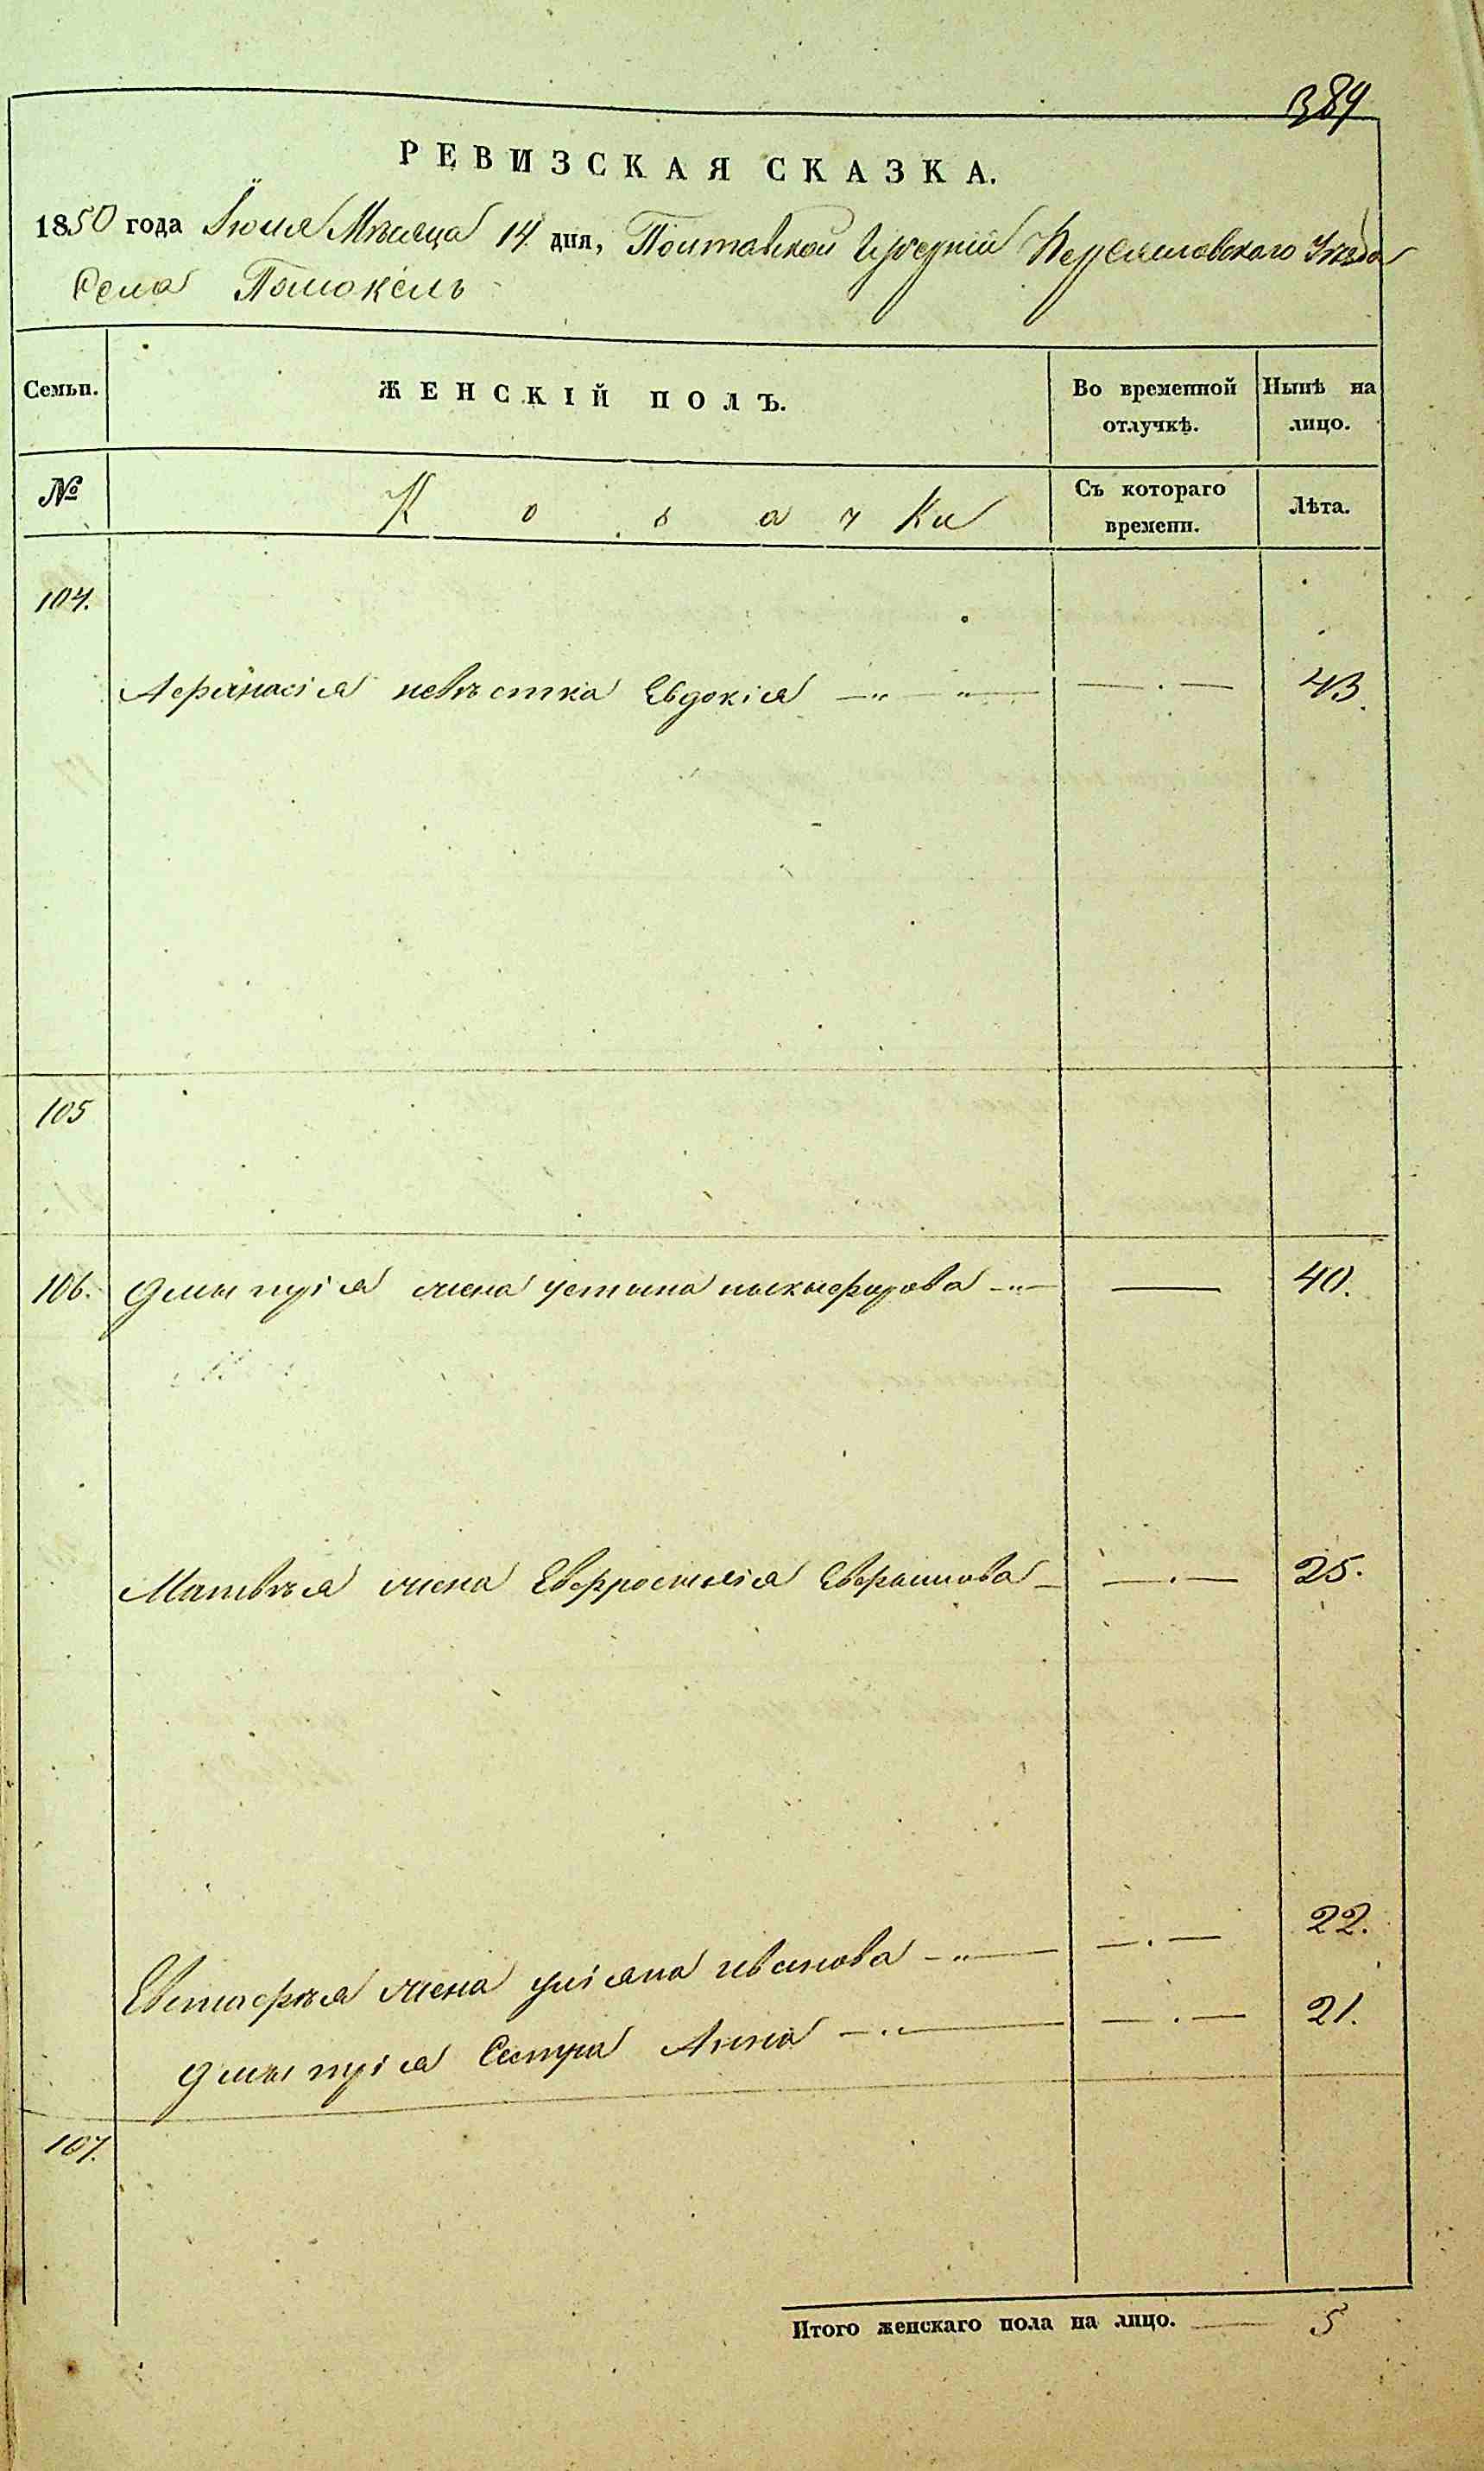 389
РЕВИЗСКАЯ СКАЗКА.
1850 года Июля Мѣсяца 14 дня, Полтавской Губерніи Переяславского Уѣзда
Села Помоклъ
Семьи.
ЖЕНСКІЙ ПОЛЪ.
Во временной отлучкѣ.
Нынѣ на лицо.
№
Козачки
Съ котораго времени.
Лѣта.
104.
Афанасія невѣстка Евдокія 43.
105
106. Дмытрія жена Устина Ныкыфорова 40.
Матвѣя жена Евфросинія Ефимова 25.
Евстафѣя жена Уліяна Иванова 22.
Дмытрія Сестра Анна 21.
107.
Итого женскаго пола на лицо. 5